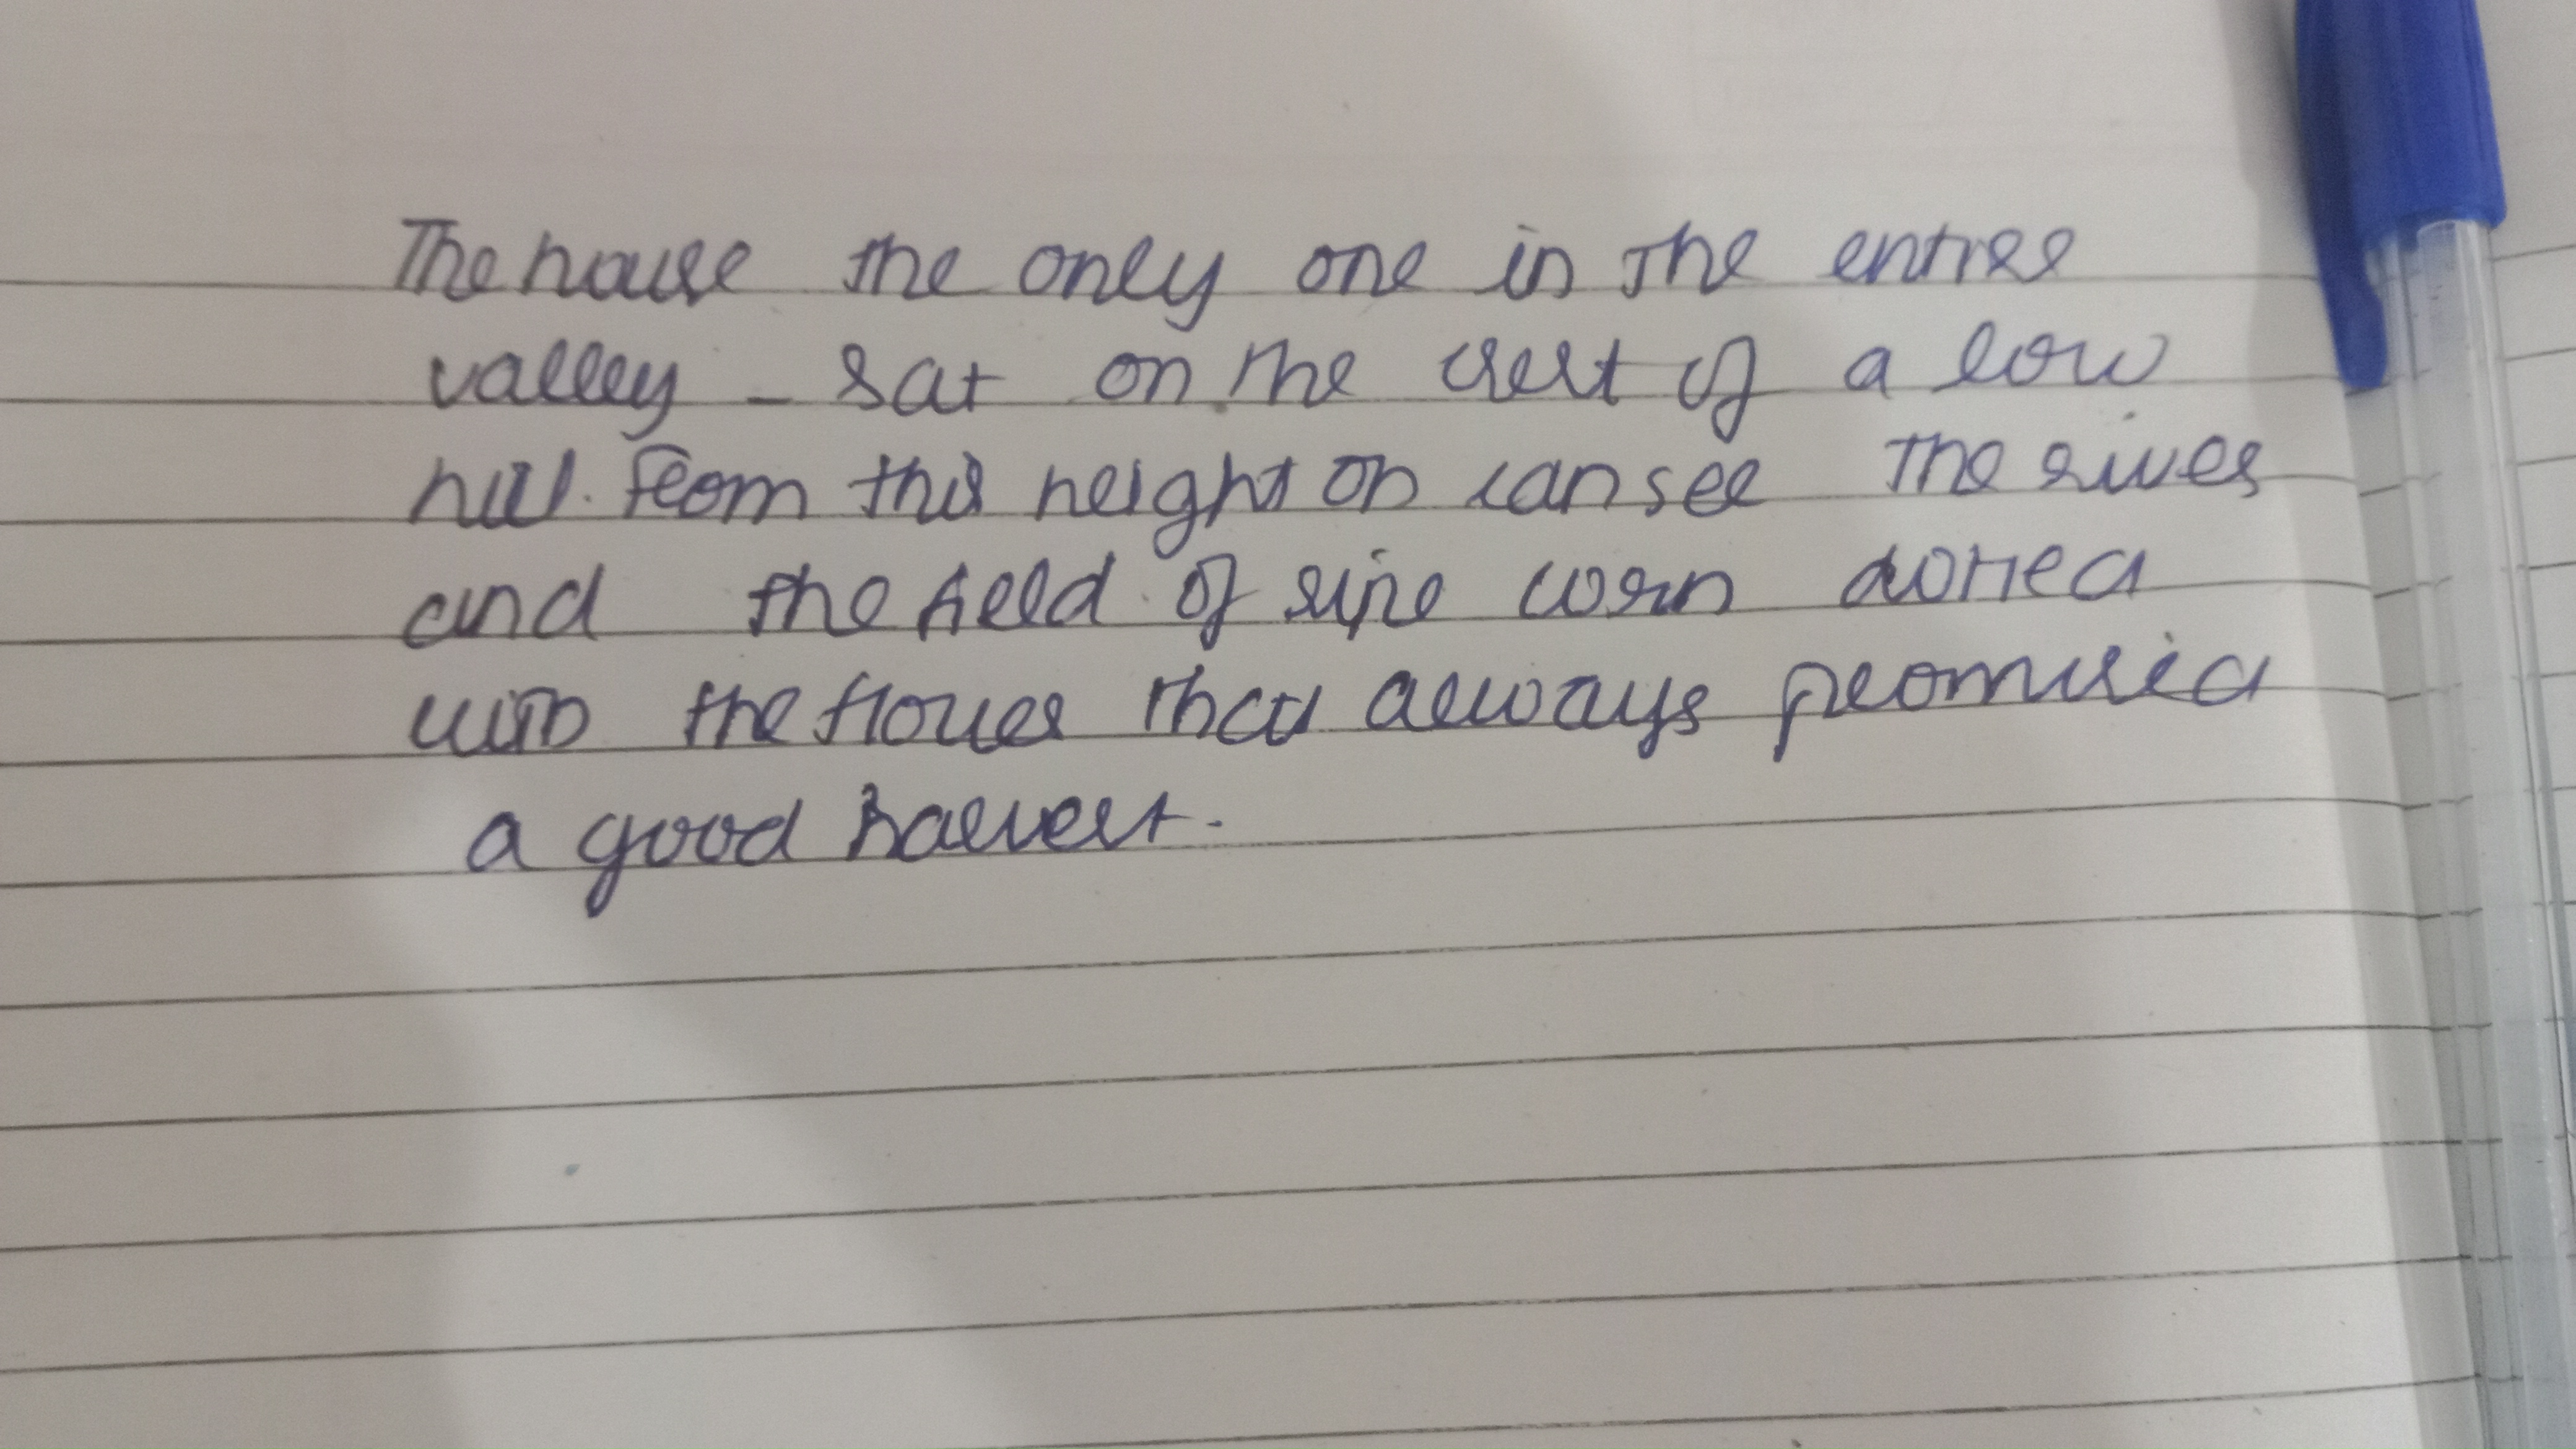 The house the only one in the entire
valley - sat on the crest of a low
hill. From this height on can see the river
and the field of ripe corn dotted
with the flower that always promised
a good harvest.